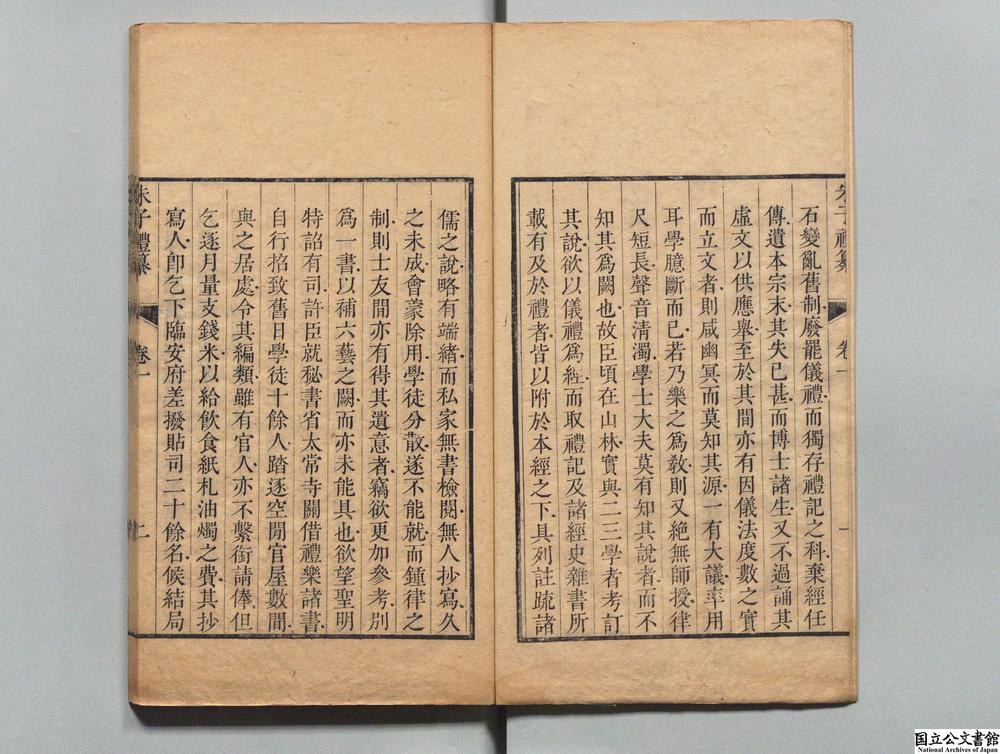 朱子禮纂
卷一
一
石變亂舊制廢罷儀禮而獨存禮記之科棄經任
傳遺本宗末其失已甚而博士諸生又不過誦其
虛文以供應舉至於其間亦有因儀法度數之實
而立文者則咸幽冥而莫知其源一有大議率用
耳學臆斷而已若乃樂之爲教則又絕無師授律
尺短長聲音清濁學士大夫莫有知其說者而不
知其爲闕也故臣頃在山林實與二三學者考訂
其說欲以儀禮爲經而取禮記及諸經史雜書所
載有及於禮者皆以附於本經之下具列註疏諸
儒之說略有端緒而私家無書檢閱無人抄寫久
之未成會蒙除用學徒分散遂不能就而鍾律之
制則士友間亦有得其遺意者竊欲更加參考別
爲一書以補六藝之闕而亦未能具也欲望聖明
特詔有司許臣就秘書省太常寺關借禮樂諸書
自行招致舊日學徒十餘人踏逐空閒官屋數間
與之居處令其編類雖有官人亦不繫銜請俸但
乞逐月量支錢米以給飲食紙札油燭之費其抄
寫人卽乞下臨安府差撥貼司二十餘名候結局
朱子禮纂
卷一
二
国立公文書館
National Archives of Japan